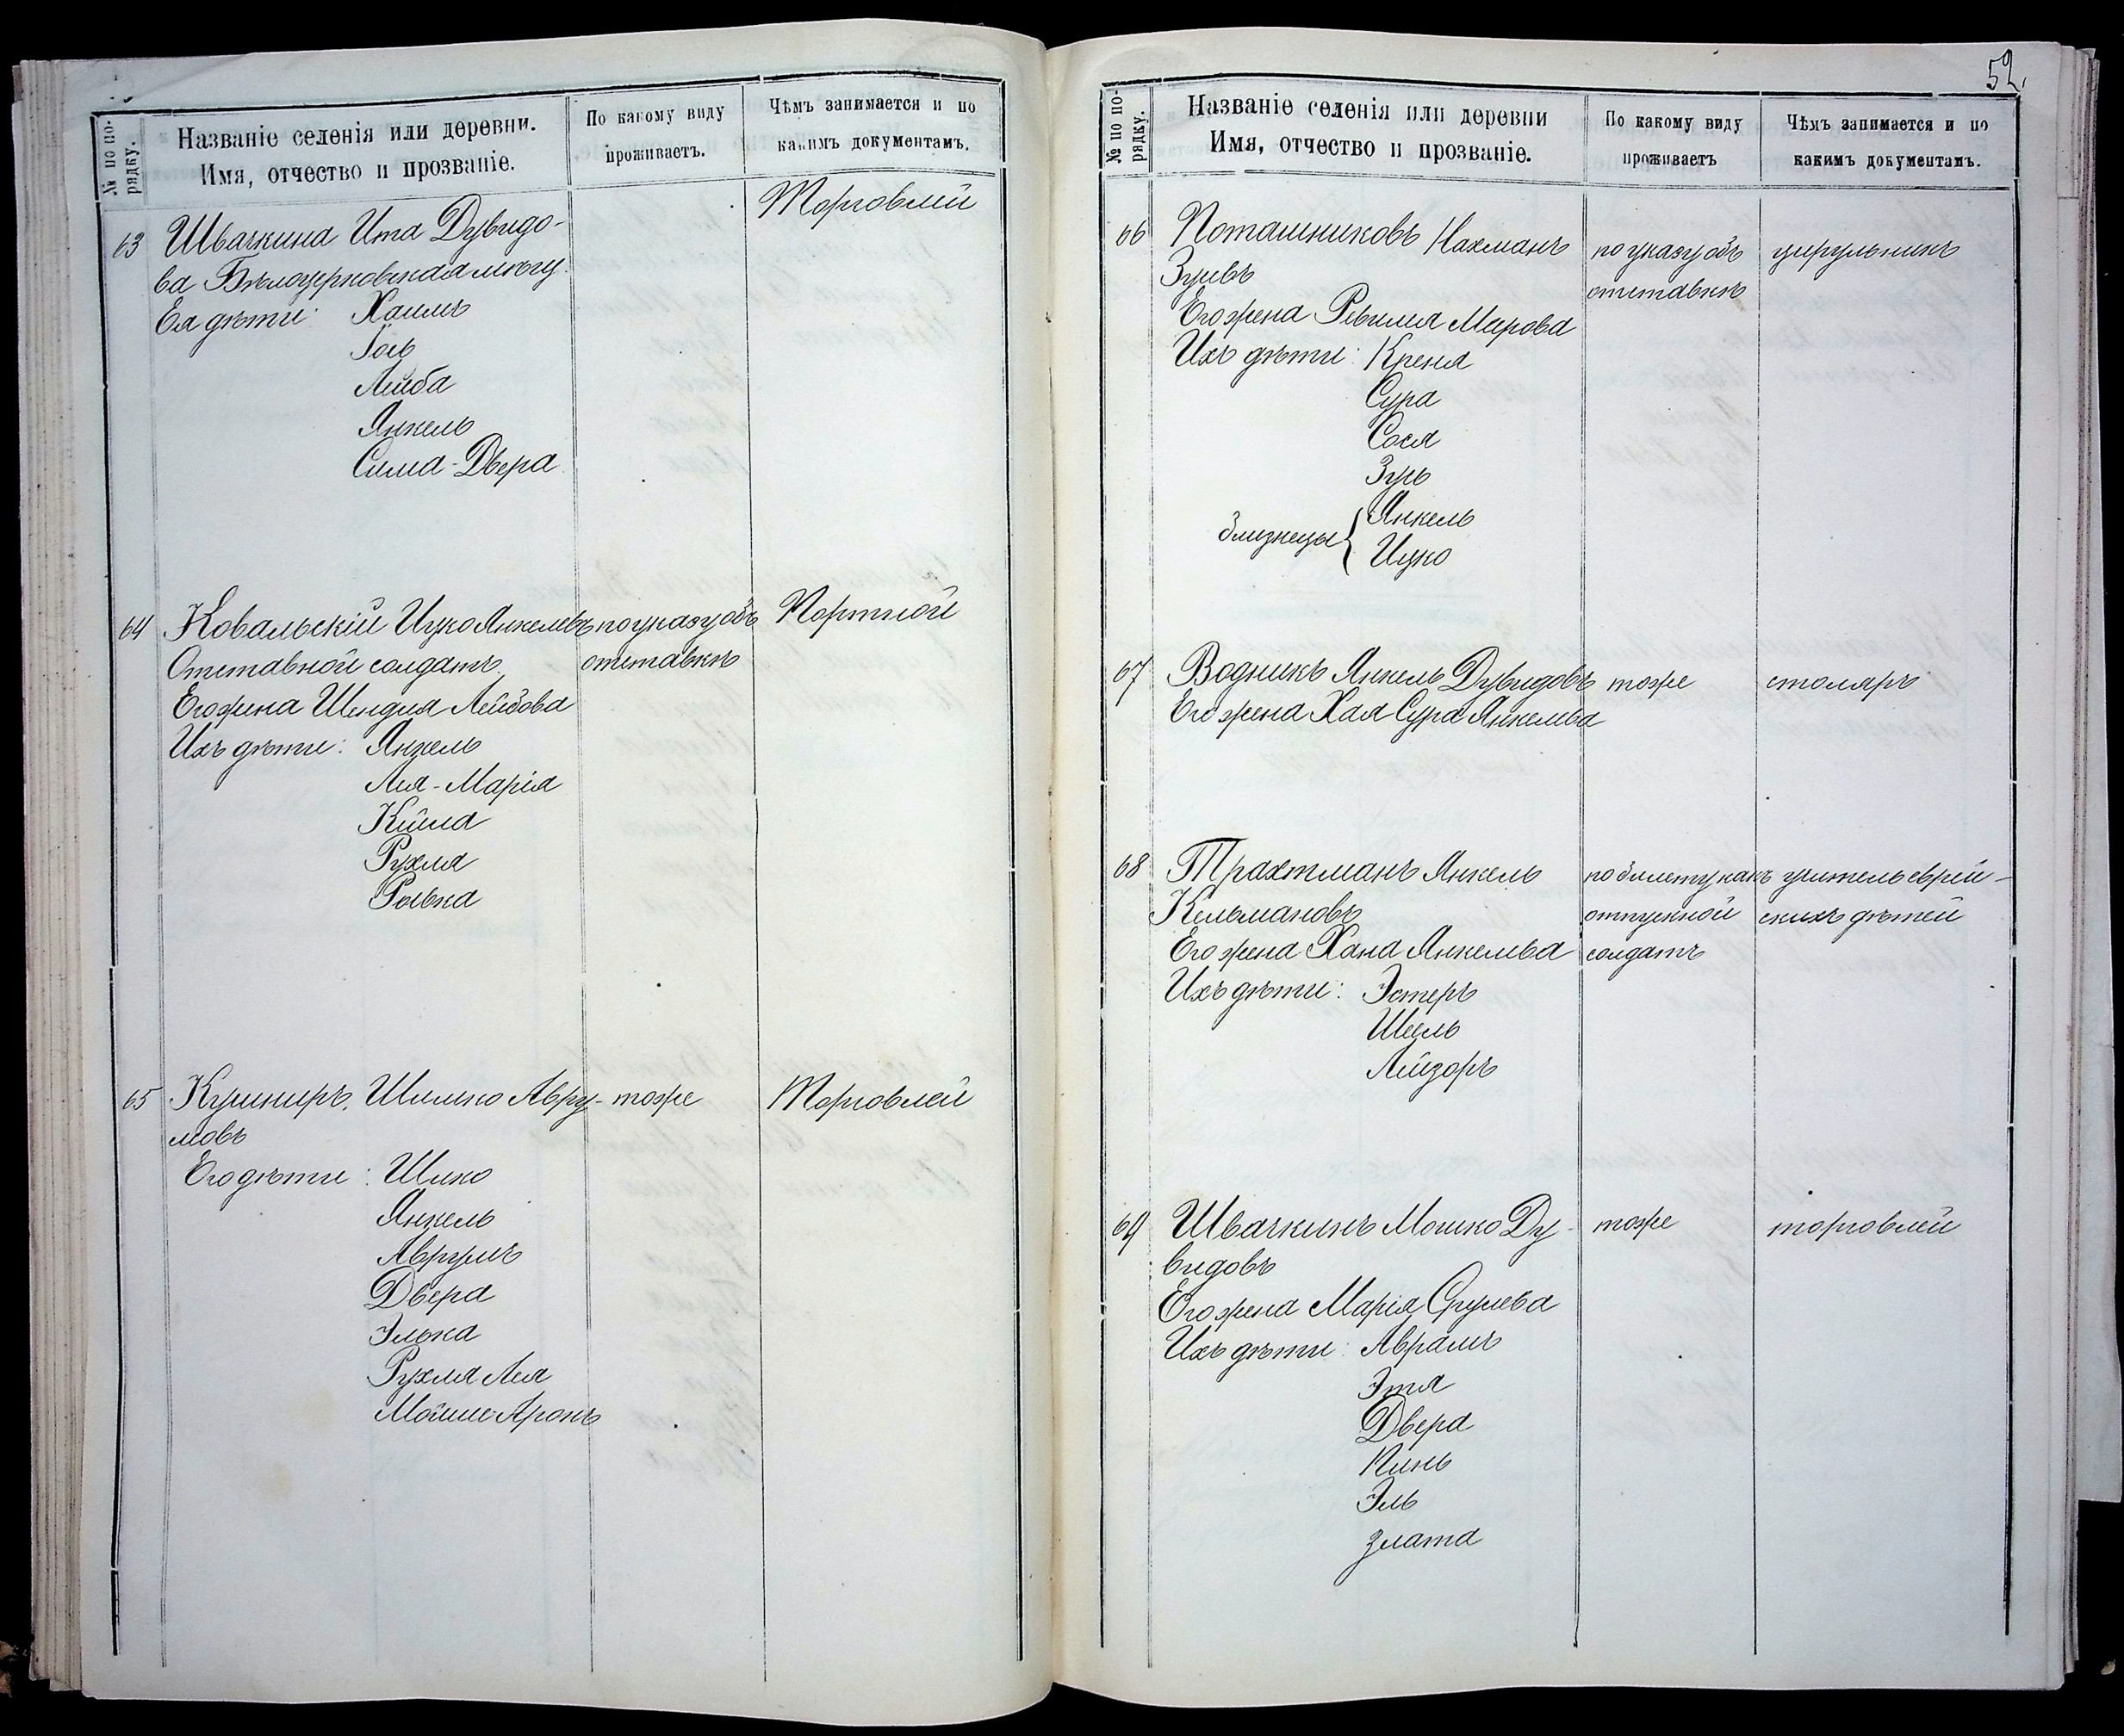 № по по-
рядку.
Названіе селенія или деревни.
Имя, отчество и прозваніе.
По какому виду
проживаетъ.
Чѣмъ занимается и по
какимъ документамъ.
63 Швачкина Ита Дувидо- Торговлей
ва Бѣлоцерковская мѣщ.
Ея дѣти: Хаимъ
Іось
Лейба
Янкель
Сима-Двера
64 Ковальскій Ицко Янкелевъ по указу объ Портной
Отставной солдатъ. отставкѣ
Его жена Шендля Лейбова
Ихъ дѣти: Янкель
Лея-Марія
Кейла
Рухля
Ривка
65 Кушниръ, Шлемко Авру- тоже Торговлей
мовъ
Его дѣти: Шико
Янкель
Аврумъ
Двера
Элька
Рухля Лея
Мойше Аронъ
52.
№ по по-
рядку.
Названіе селенія или деревни
Имя, отчество и прозваніе.
По какому виду
проживаетъ
Чѣмъ занимается и по
какимъ документамъ.
66 Поташниковъ Нахманъ по указу объ цирульникъ
Зусевъ отставкѣ
Его жена Ревиля Марова
Ихъ дѣти: Крейня
Сура
Сося
Зусь
близнецы { Янкель
Ицко
67 Водникъ Янкель Дувидовъ тоже столяръ
Его жена Хая Сура Янкелева
68 Трахтманъ Янкель по билету какъ учитель еврей-
Кельмановъ отпускной скихъ дѣтей
Его жена Хана Янкелева солдатъ
Ихъ дѣти: Эстеръ
Шеель
Лейзоръ
69 Швачкинъ Мошко Ду- тоже торговлей
видовъ
Его жена Марія Срулева
Ихъ дѣти: Аврамъ
Этя
Двера
Пинь
Эль
Злата